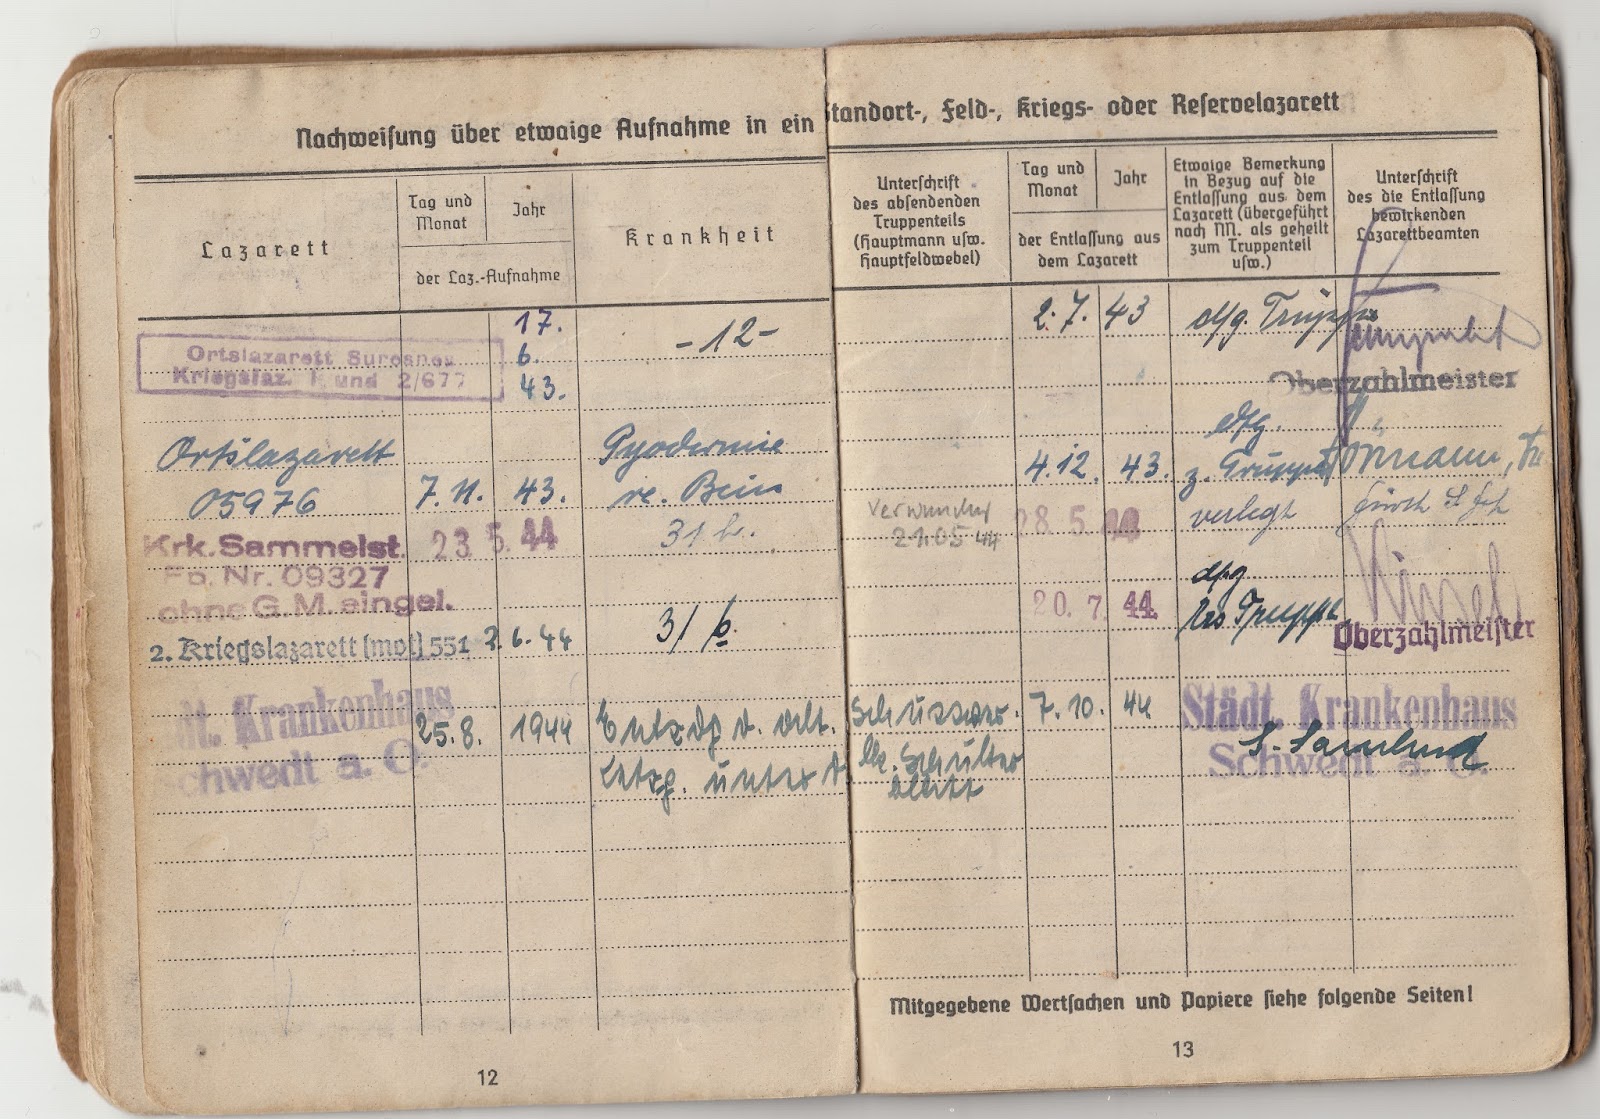 Nachweisung über etwaige Aufnahme in ein Standort-, Feld-, Kriegs- oder Reservelazarett
Lazarett
Tag und
Monat
Jahr
der Laz.-Aufnahme
Krankheit
Ortslazarett Suresnes
Kriegslaz. 1 und 2/677
17.
6.
43.
- 12 -
Ortslazarett
05976
7. 11. 43.
Pyodermie
re. Bein
Krk. Sammelst. 23. 5. 44
Fp. Nr. 09327
ohne G.M. eingel.
31 b.
2. Kriegslazarett (mot) 551 2. 6. 44
31 b.
Städt. Krankenhaus
Schwedt a. O.
25. 8. 1944
unter
12
Unterschrift
des absendenden
Truppenteils
(Hauptmann usw.
Hauptfeldwebel)
Tag und
Monat
Jahr
der Entlassung aus
dem Lazarett
Etwaige Bemerkung
in Bezug auf die
Entlassung aus dem
Lazarett (übergeführt
nach NN. als geheilt
zum Truppenteil
usw.)
Unterschrift
des die Entlassung
bewirkenden
Lazarettbeamten
2. 7. 43 dfg. Truppe
Oberzahlmeister
dfg.
4. 12. 43. z. Truppe
Verwundet
21.05 44
28. 5. 44
verlegt
dfg
20. 7. 44. Truppe
Oberzahlmeister
Schusswer.
lk. Schulter
blatt
7. 10. 44
Städt. Krankenhaus
Schwedt a. O.
Mitgegebene Wertsachen und Papiere siehe folgende Seiten!
13